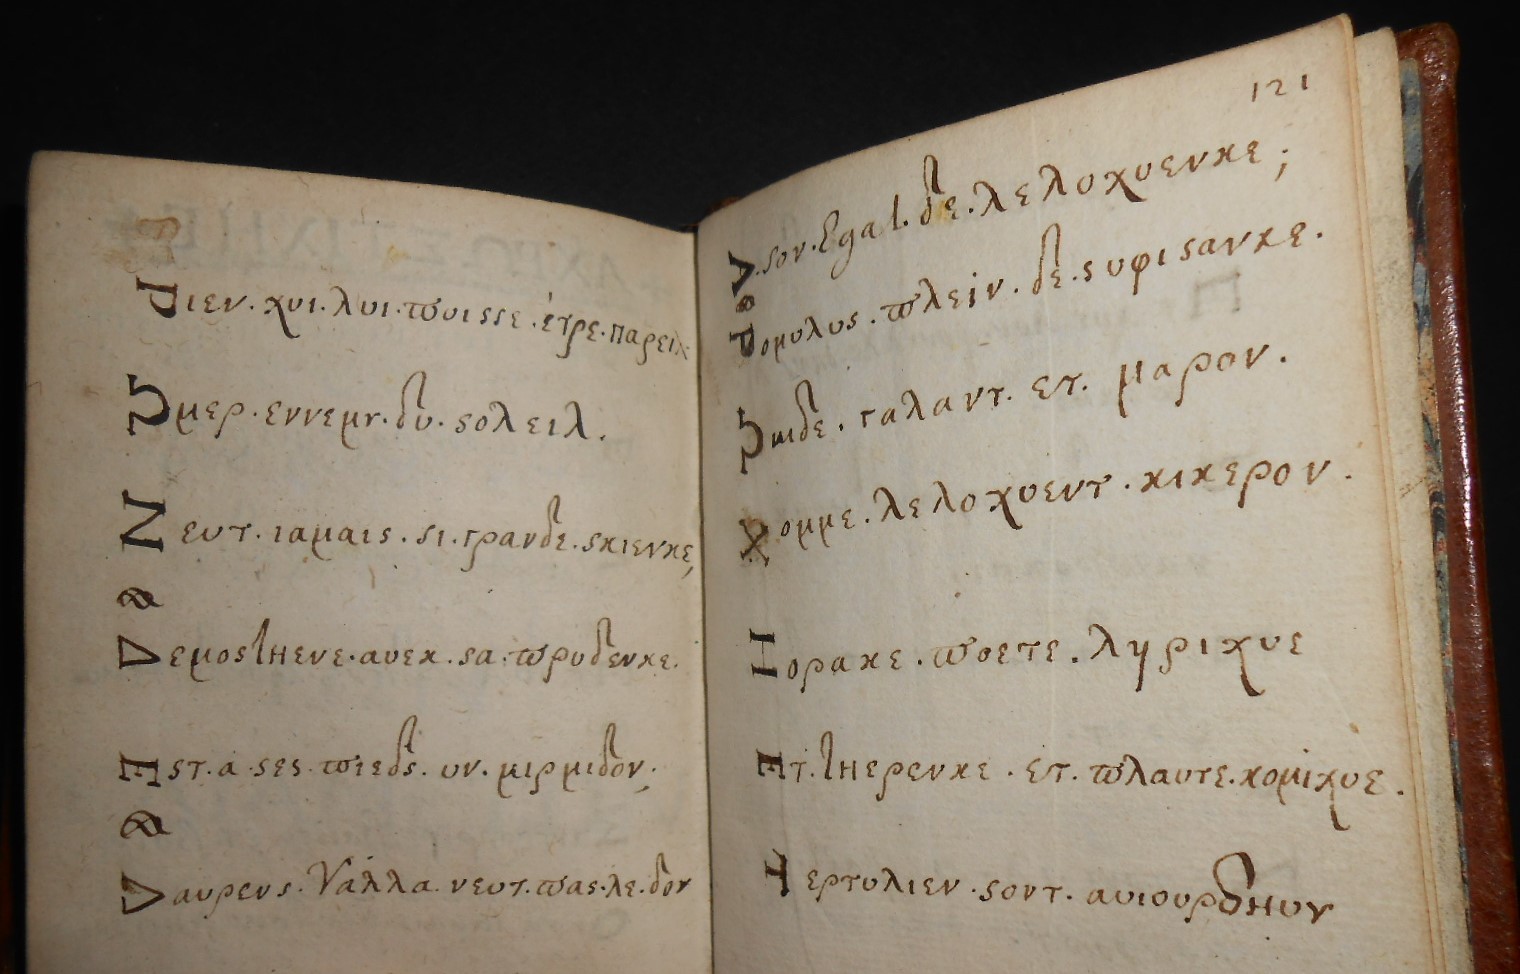 ιεν. χυι. λυι. ϖυισσε. ἑτρε. παρειλ
Ομερ. εννεμυ. δυ. σολειλ.
Νευτ. ιαμαις. σι. γρανδε. σκιενκε,
Δεμοσθηενε. αυεκ. σα. ϖρυδενκε.
Εστ. α. σες. ϖιεδς. υν. μιρμιδον;
Λαυρενς. Υαλλα. νευτ. ϖας. λε. δον
121
σον. Egal. δε. λελοχυενκε;
Ρομυλυς. ϖλειν. δε. συφισανκε.
Οuιδε. γαλαντ. ετ. μαρον.
Χομμε. λελοχυεντ. κικερον.
Ηορακε. ϖοετε. λyριχυε
Ετ. θηερενκε. ετ. ϖλαυτε. κομιχυε.
Τερτυλιεν. σοντ. αυιουρδηυυ